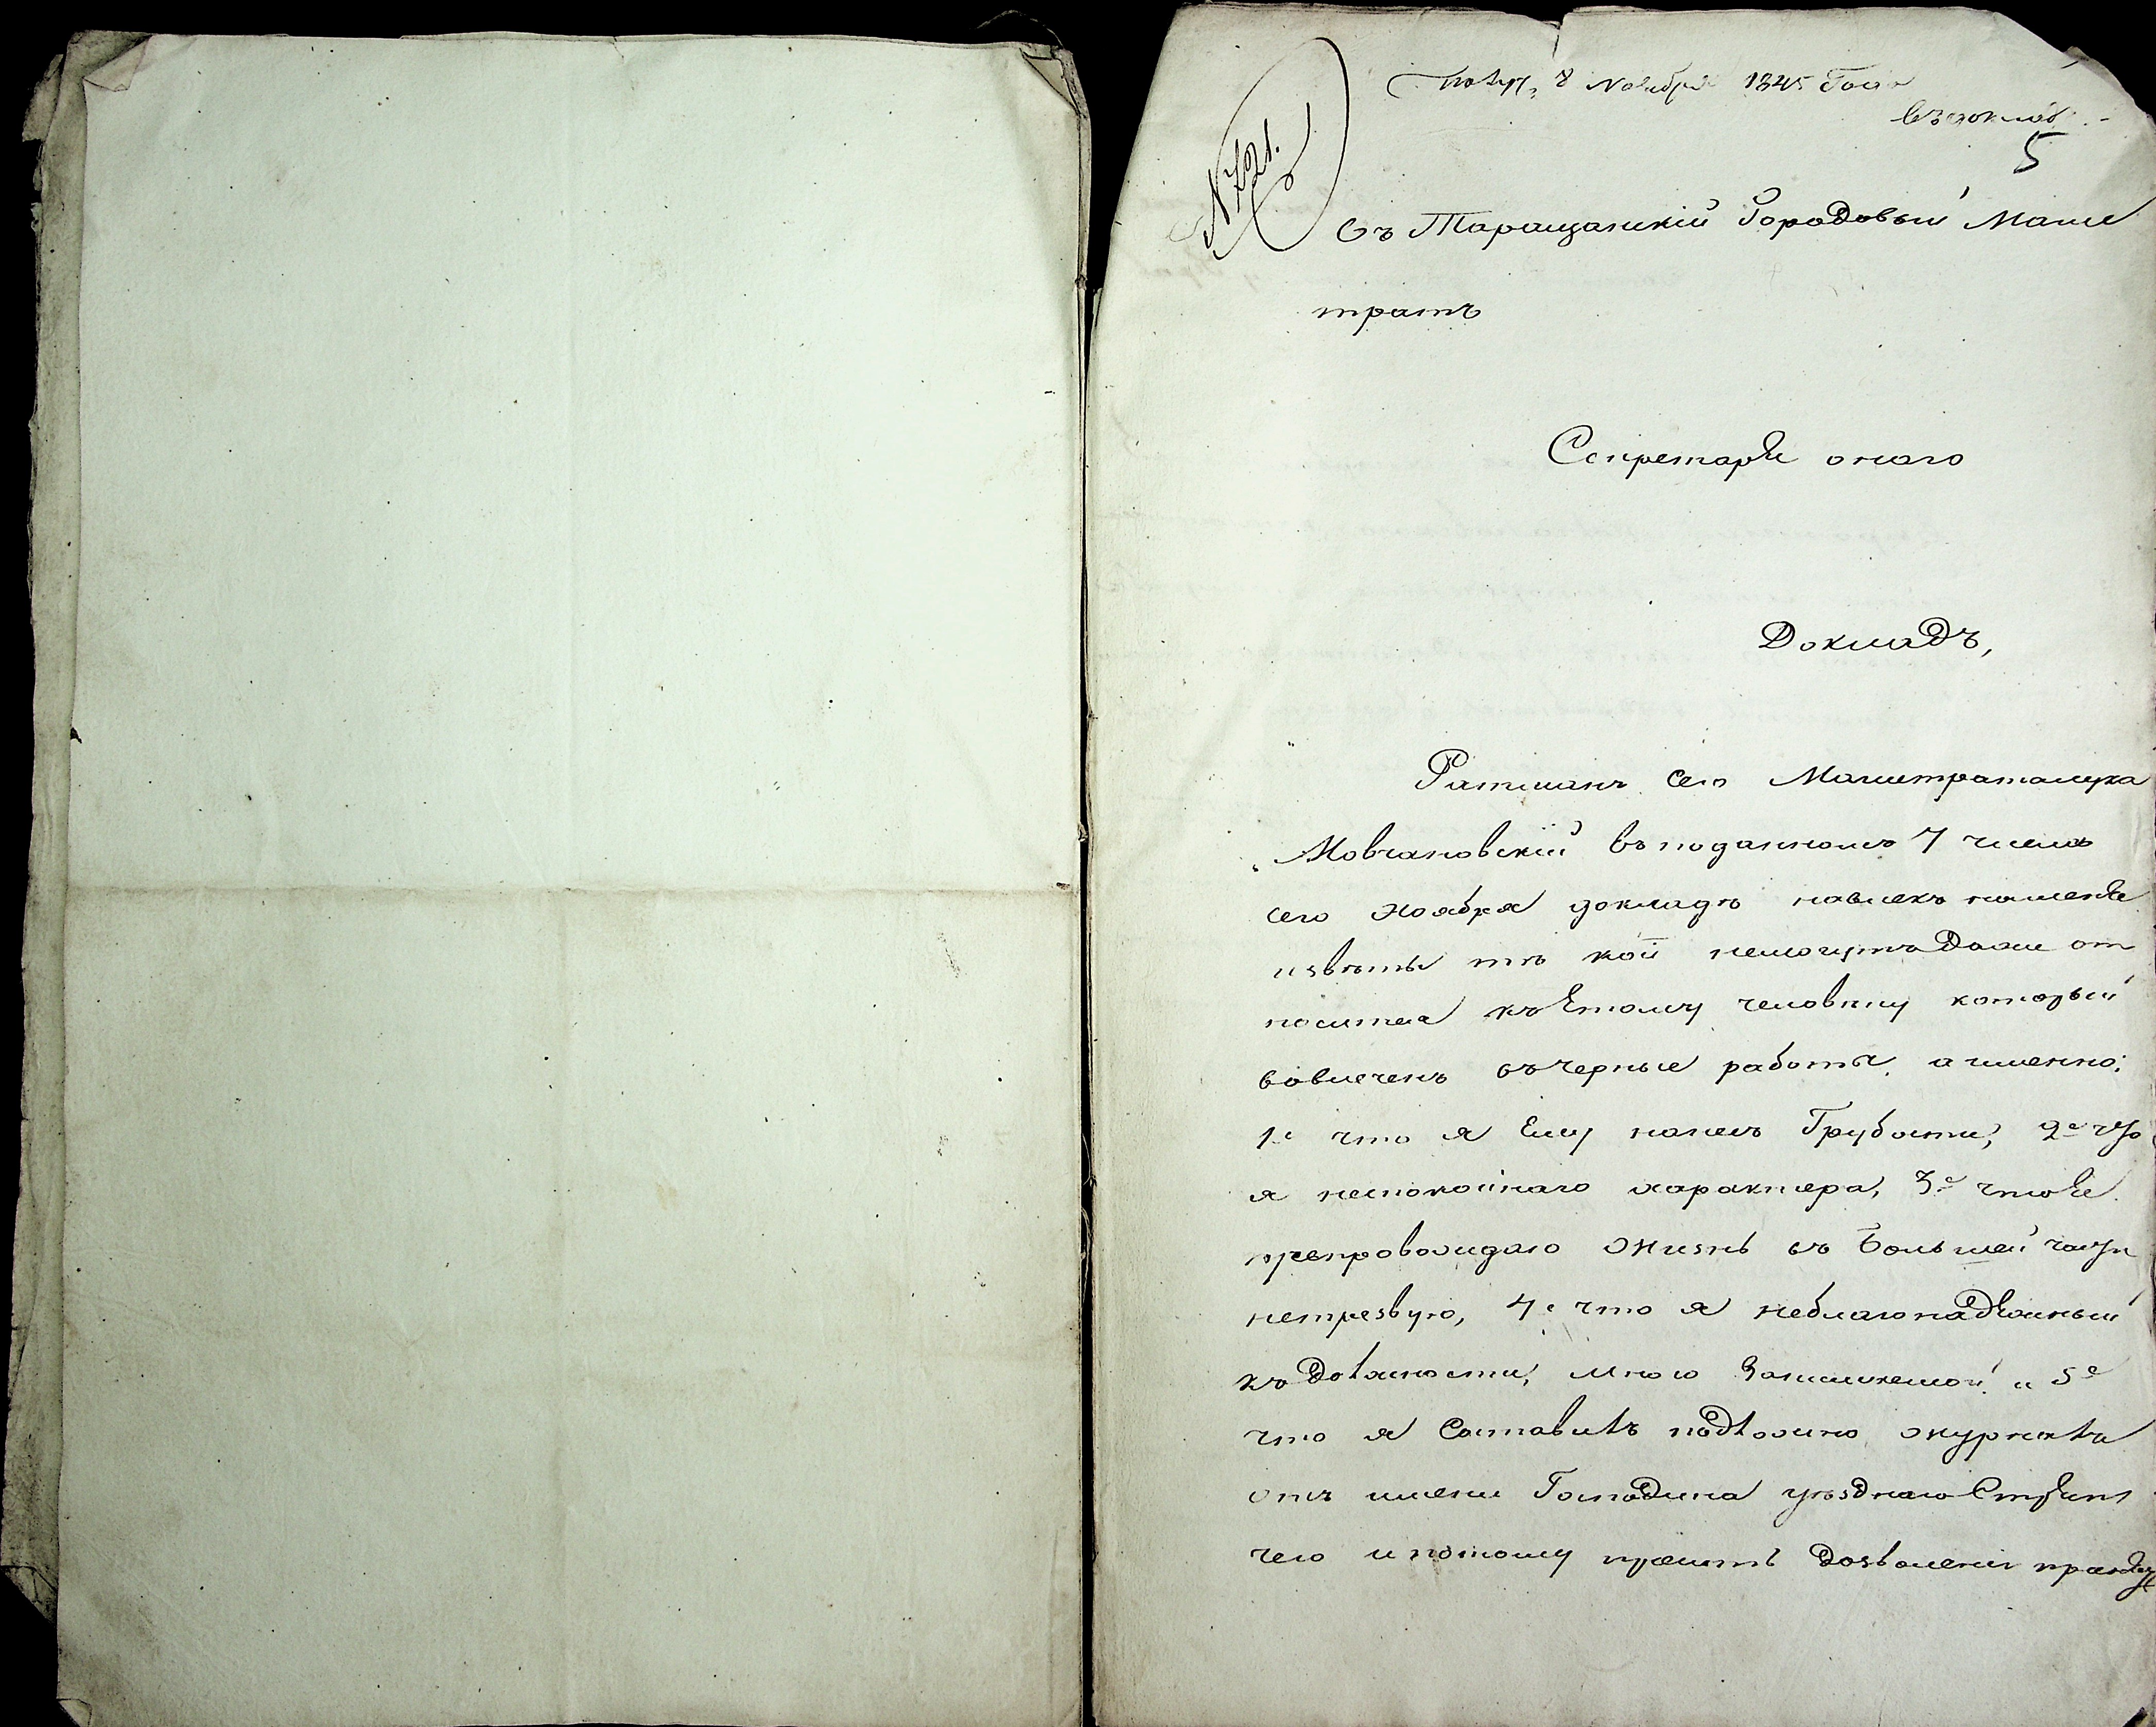 Получ. 8 Ноября 1845 Года
въ доклад
5
№ 721.
Въ Таращанскій Городовый Маги
тратъ
Секретаря онаго
Докладъ,
Ратманъ сего Магистрата Лука
Мовчановскій въ поданномъ 7 числа
сего ноября докладѣ навлекъ на меня
извѣты тѣ кои не могутъ даже от
носится къ етому человѣку который
вовлеченъ въ черные работы, а именно:
1е что я ему нанесъ Грубости, 2е что
я неспокойнаго характера, 3е что я
препровождаю жизнь въ большей части
нетрезвую, 4е что я неблагонадежный
къ должности, мною занимаемой и 5е
что я составилъ подложно журналъ
отъ имени Господина уѣзднаго Стряп
чего и потому проситъ дозволенія